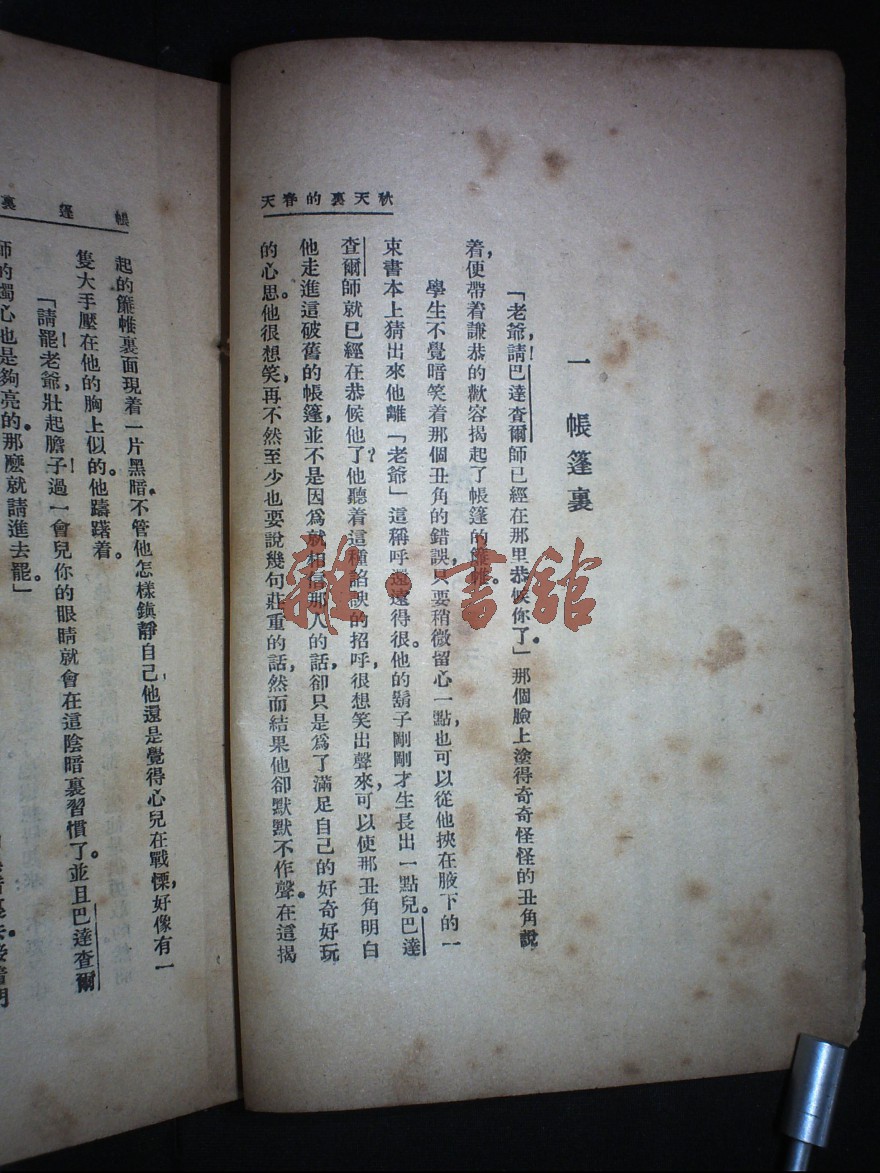 秋天裏的春天
一　帳篷裏
「老爺，請！巴達查爾師已經在那里恭候你了。」那個臉上塗得奇奇怪怪的丑角說
着，便帶着謙恭的歡容揭起了帳篷的簾帷。
學生不覺暗笑着那個丑角的錯誤，只要稍微留心一點，也可以從他挾在腋下的一
束書本上猜出來他離「老爺」這稱呼還遠得很。他的鬍子剛剛才生長出一點兒。巴達
查爾師就已經在恭候他了？他聽着這種諂諛的招呼，很想笑出聲來，可以使那丑角明白
他走進這破舊的帳篷，並不是因爲就相信那人的話，卻只是爲了滿足自己的好奇好玩
的心思。他很想笑，再不然至少也要說幾句莊重的話，然而結果他卻默默不作聲。在這揭
帳篷裏
起的簾帷裏面現着一片黑暗。不管他怎樣鎮靜自己，他還是覺得心兒在戰慄，好像有一
隻大手壓在他的胸上似的。他躊躇着。
「請罷！老爺，壯起膽子！過一會兒你的眼睛就會在這陰暗裏習慣了。並且巴達查爾
師的獨心也是夠亮的。那麽就請進去罷。」
雜·書館